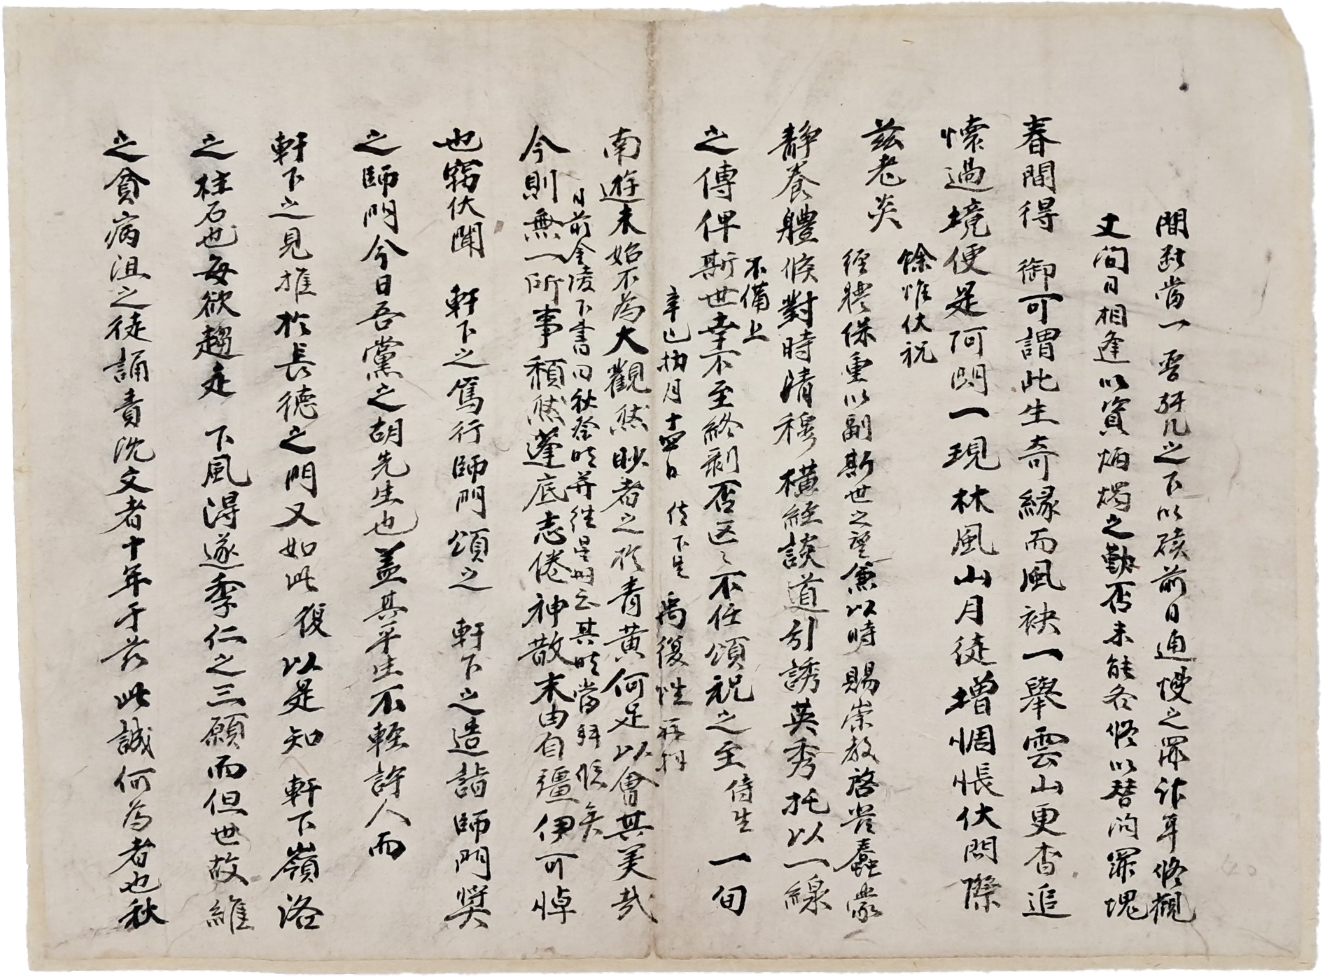 春間得 御可謂此生奇緣而風袂一擧雲山更杳追
懷過境便是阿閦一現林風山月徒增悃悵伏問際
玆老炎
靜養體候對時淸穆橫經談道引誘英秀托以一線
之傳俾斯世幸不至終剝否區〻不任頌祝之至侍生一旬
南遊未始不爲大觀然眇者之於靑黃何足以會其美哉
今則無一所事頹然蓬底志倦神散末由自彊伊可悼
也竊伏聞 軒下之篤行師門頌之 軒下之造詣師門奬
之師門今日吾黨之胡先生也蓋其平生不輕許人而
軒下之見推於長德之門又如此復以是知 軒下嶺洛
之柱石也每欲趨走 下風得遂季仁之三願而但世故維
之貧病沮之徒誦責沈文者十年于玆此誠何爲者也秋
間 當一 軒几之下以贖前日逋慢之罪 耳 觀
丈間日相逢以資炳燭之勤否未能各修以替 罪愧
餘惟伏祝
經體保重以副斯世之望兼以時賜崇教啓 蠢蒙
不備上
辛巳 月十四日 侍下生 禹復性 再拜
日前金陵下書曰秋登時幷往星州云其時當拜候矣